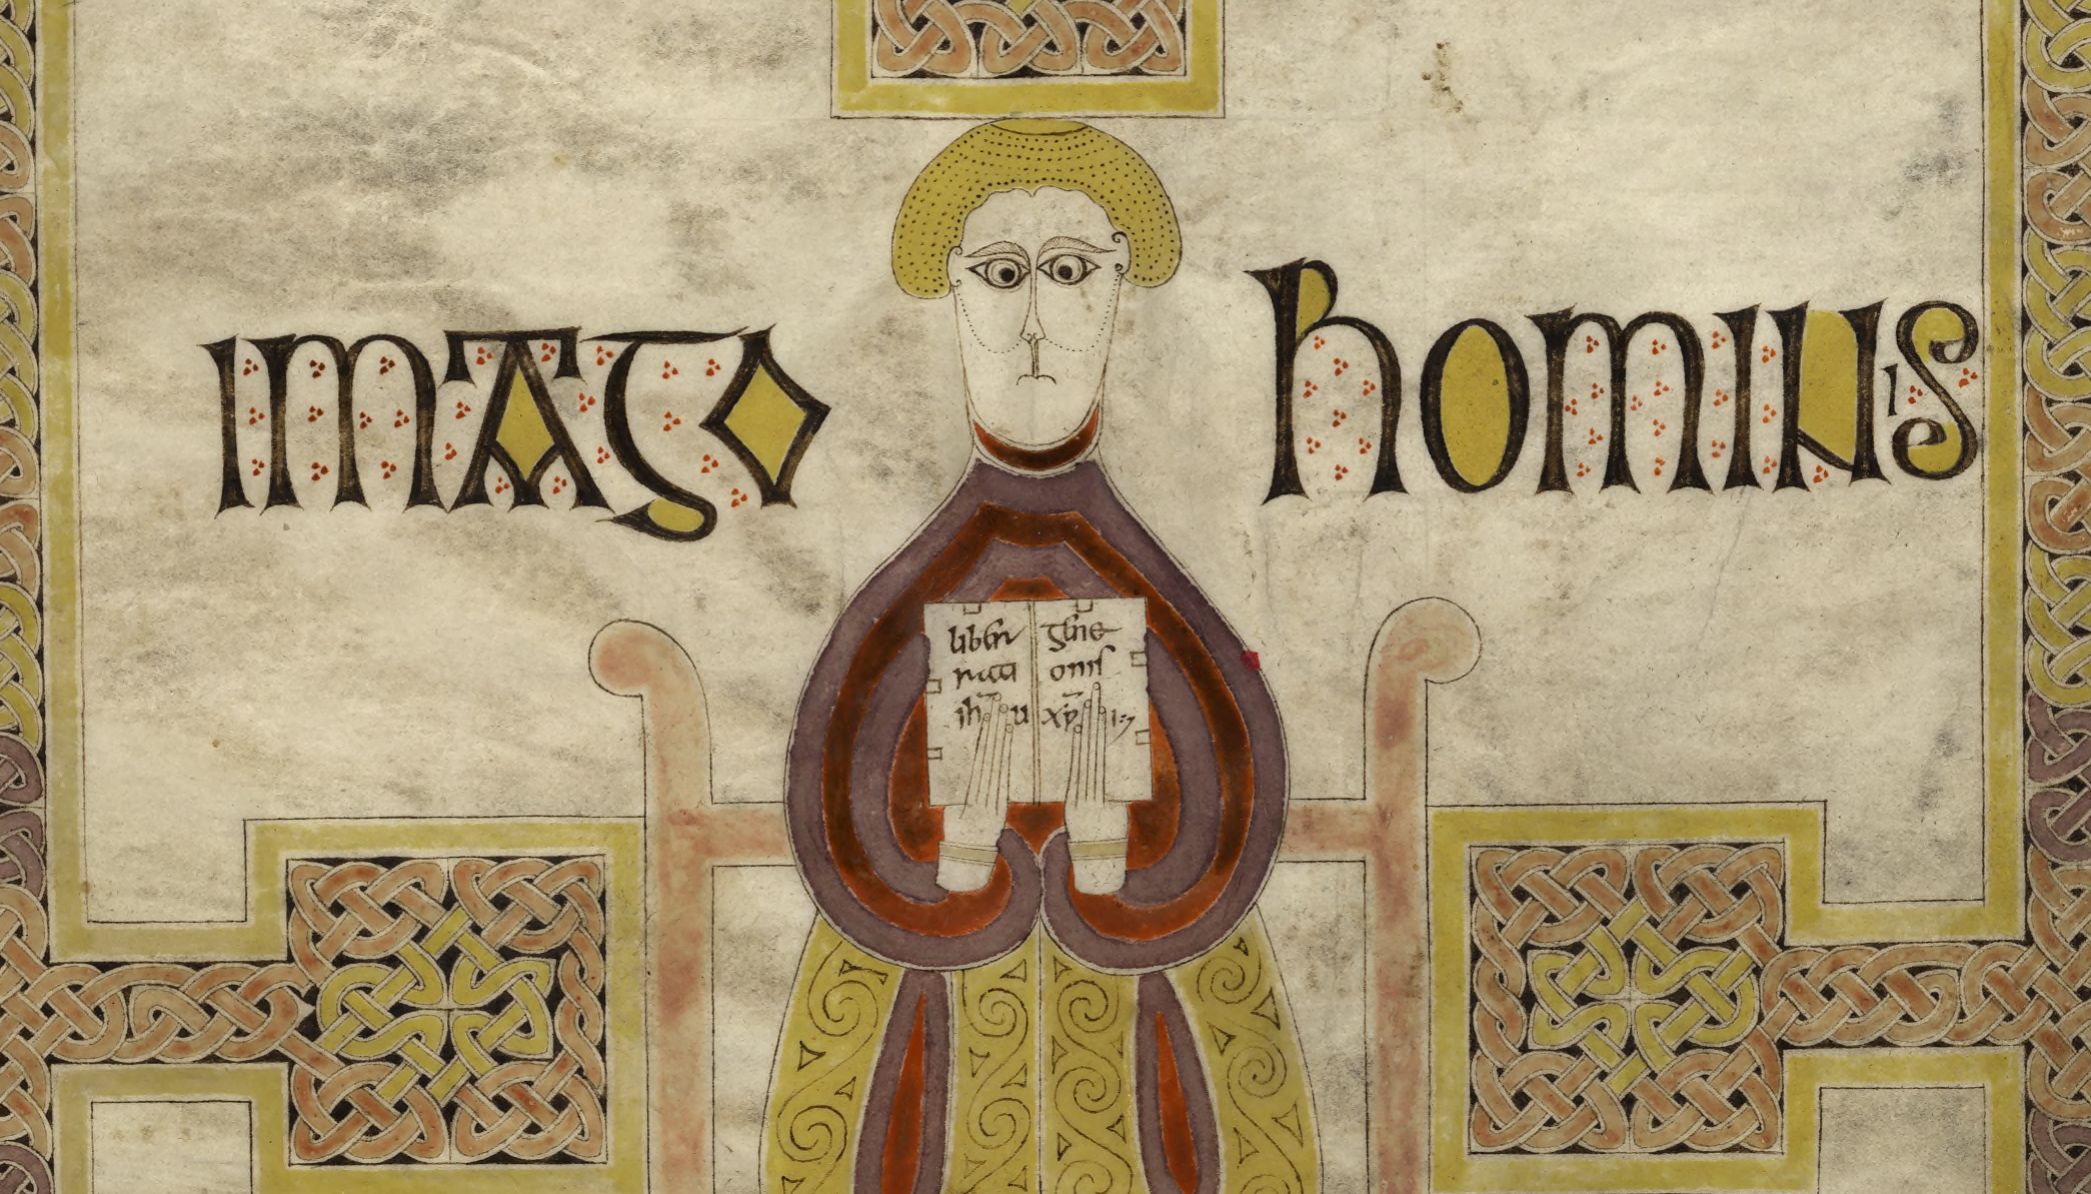 imago hominis
liber gene
rati onis
ihu xpi:7